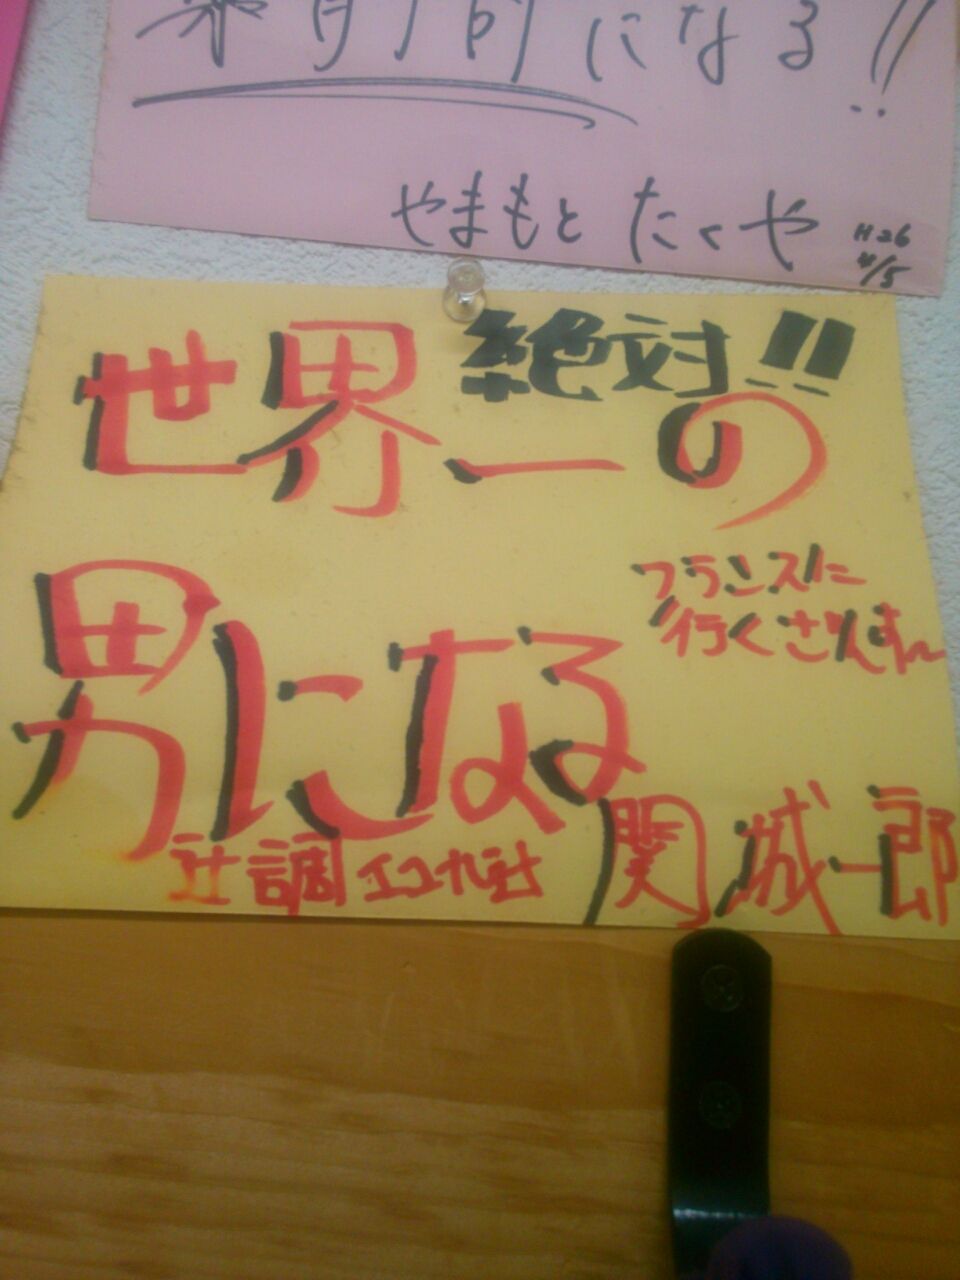 になる!!
やまもと たくや
H26
4/5
絶対!!
世界一の
男になる
フランスに
行く
辻調エコール
関 城一郎